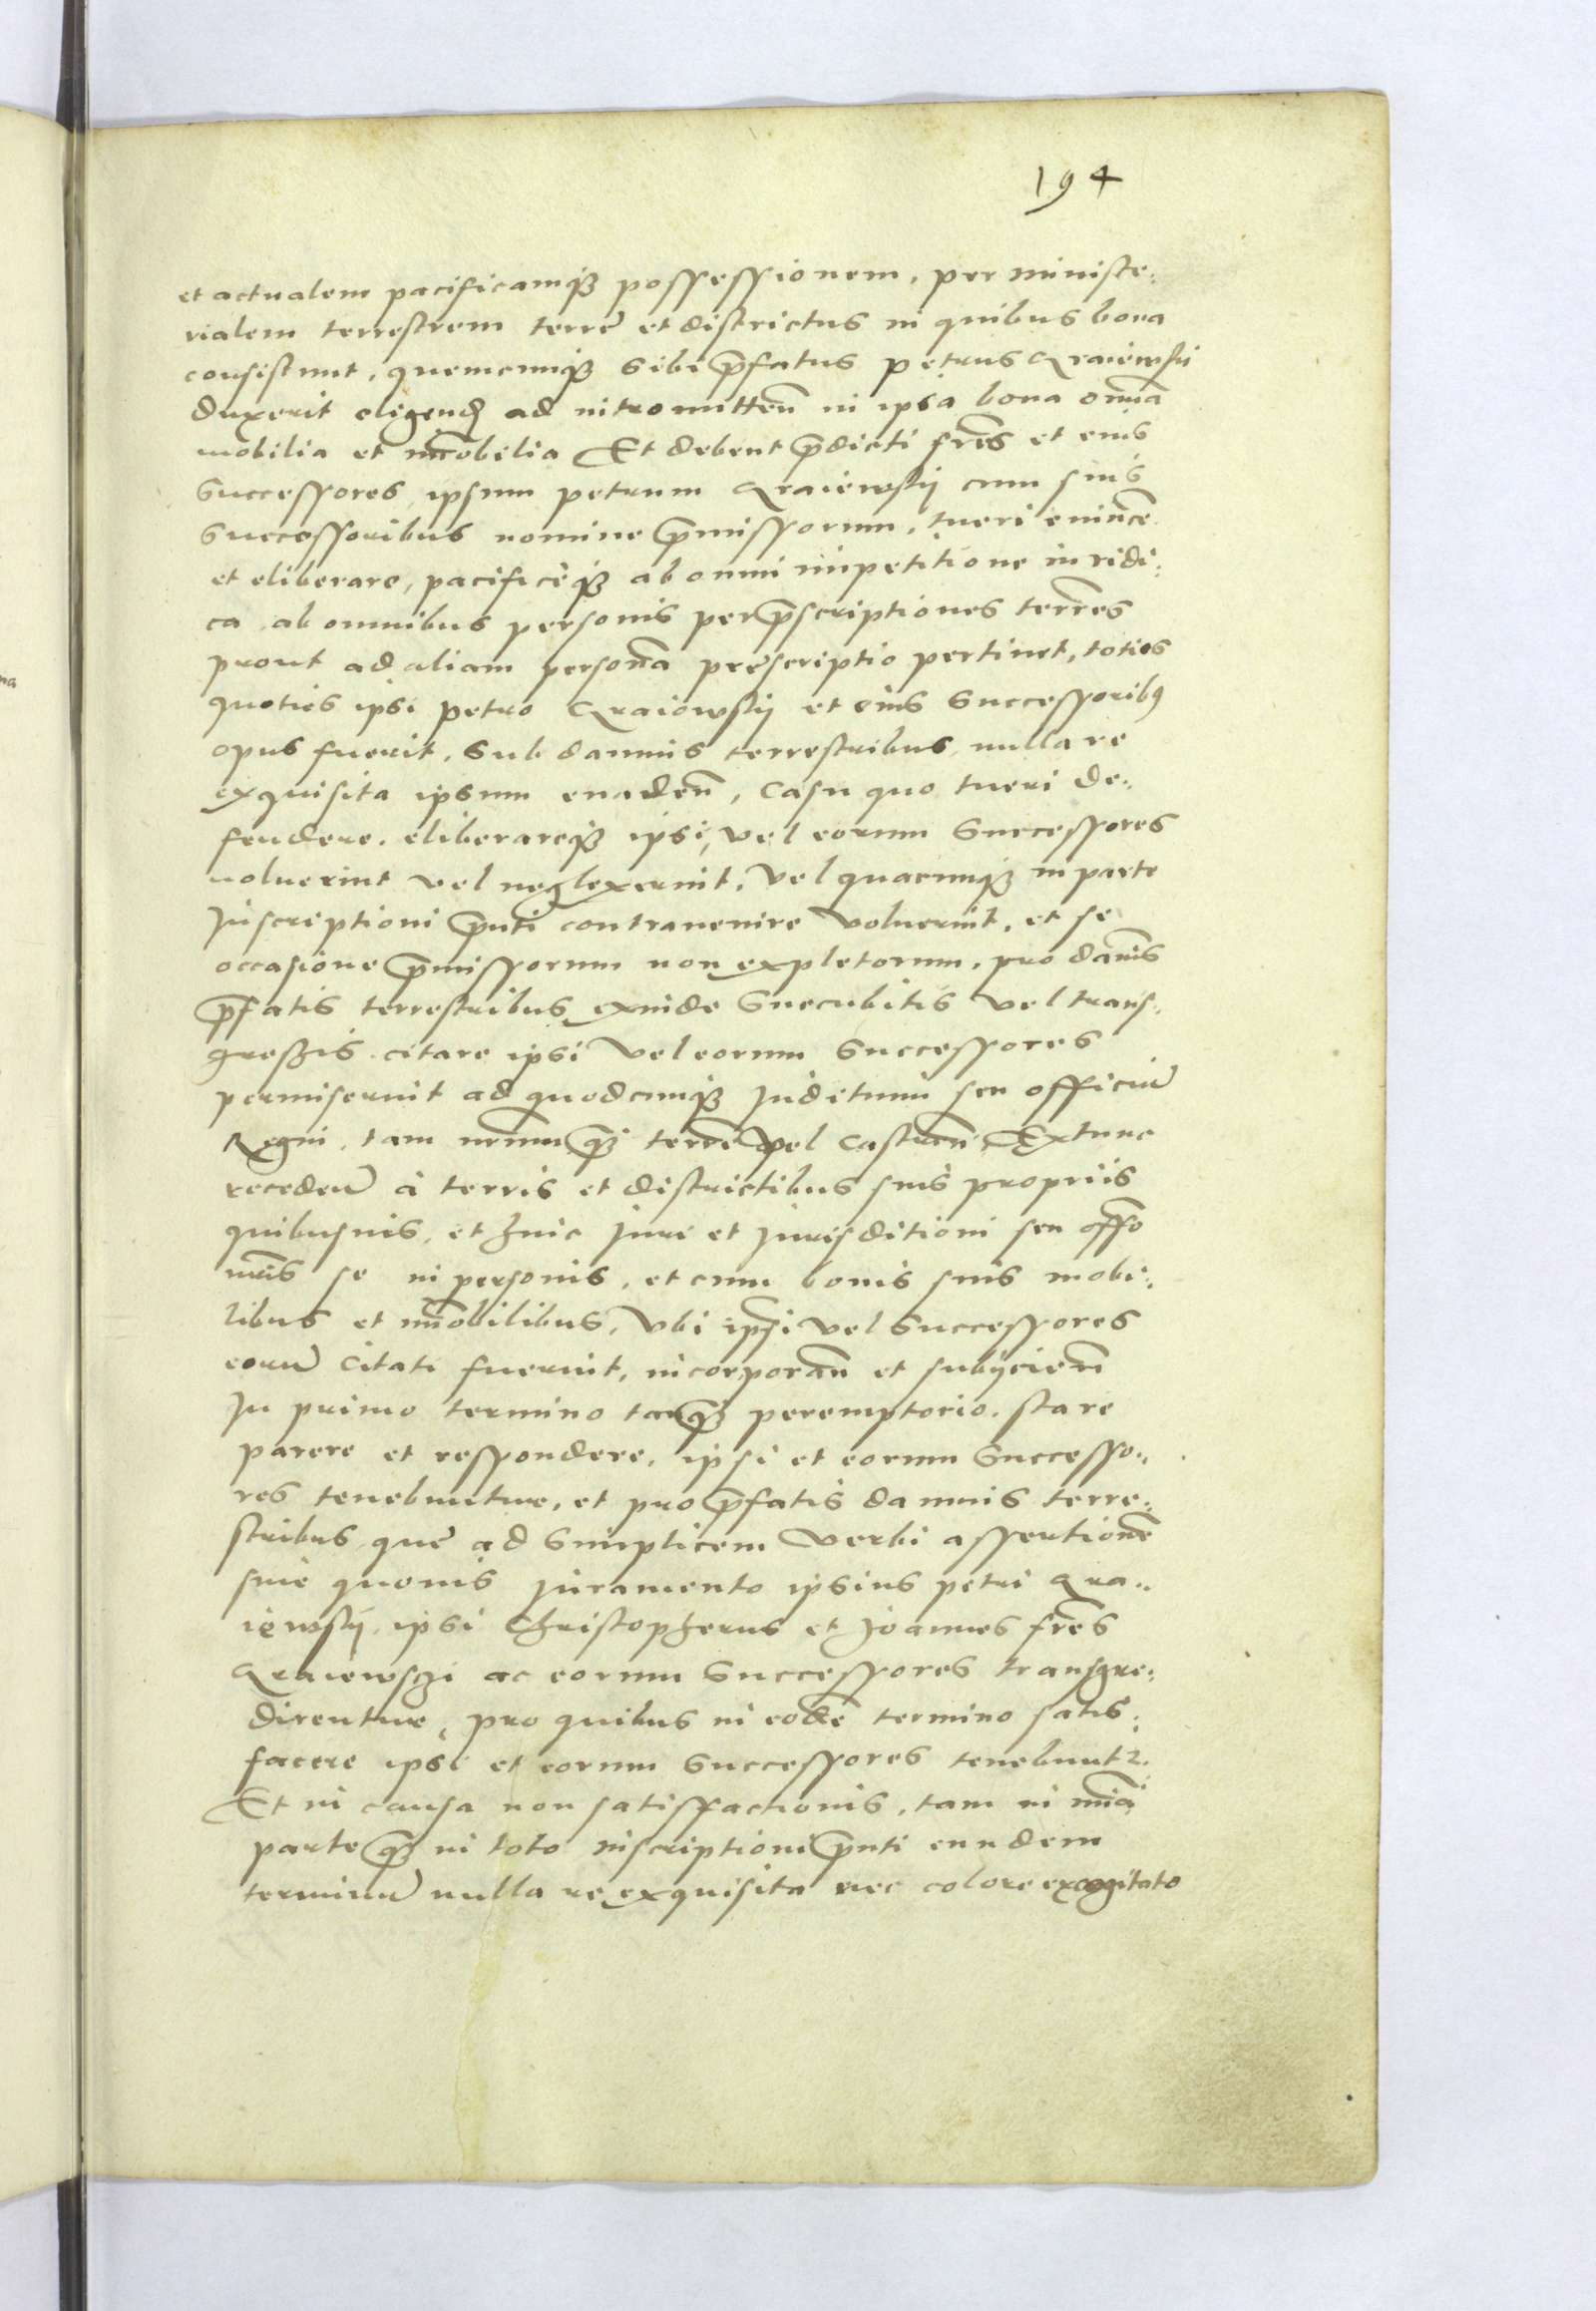 194
et actualem pacificamq3 possessionem, per ministe:
rialem terrestrem terrę et districtus in quibus bona
consistunt, quemcunq3 sibi p̄fatus Petrus Kraiewskii
duxerit eligend ad intromitten̄ in ipsa bona om̄ia
mobilia et im̄obilia Et debent p̄dicti fr̄es et eius
Successores ipsum petrum Kraiewskij cum suis
Successoribus nomine p̄missorum, tueri euincē
et eliberare, pacificeq3 ab omni impetitione iuridi:
ca ab omnibus personis per p̄scriptiones terr̄es
prout ad aliam persona̅ prescriptio pertinet, toties
quoties ipsi petro Kraiowskij et eius Successorib9
opus fuerit, Sub damnis terrestribus nulla re
exquisita ipsum euaden̄, Casu quo tueri de:
fendere, eliberareq3 ipsi, vel eorum Successores
noluerint vel neglexerint, Vel quacunq3 in parte
Inscriptioni p̄nti contrauenire voluerint, et se
occasione p̄missorum non expletorum, pro dam̄is
p̄fatis terrestribus exinde Succubitis vel trans:
gressis citare ipsi vel eorum Successores
permiserint ad quodcunq3 Juditium seu officiū
Regni, tam nr̄um q̄3 terrē vel Castren̄, Extunc
recedeñ à terris et districtibus suis propriis
quibusuis, et huic Jure et Jurisditioni seu offo
nr̄is se in personis, et cum bonis suis mobi:
libus et im̄obilibus, Vbi ipsi vel Successores
eorū Citati fuerint, incorporan̄ et subijcien̄
In primo termino tanq̄3 peremptorio, stare
parere et respondere, ipsi et eorum Successo:
res tenebuntur, et pro p̄fatis damnis terre:
stribus quę ad Simplicem verbi assertionē
sine quouis Juramento ipsius petri Kra:
iewskij ipsi Christopherus et Joannes fr̄es
Kraiewschi ac eorum Successores transgre:
direntur, pro quibus in eodē termino satis:
facere ipsi et eorum Successores tenebunt2.
Et in causa non satisfactionis, tam in
parte q̄3 in toto inscriptioni p̄nti eundem
terminū nulla re exquisita nec colore excogitato